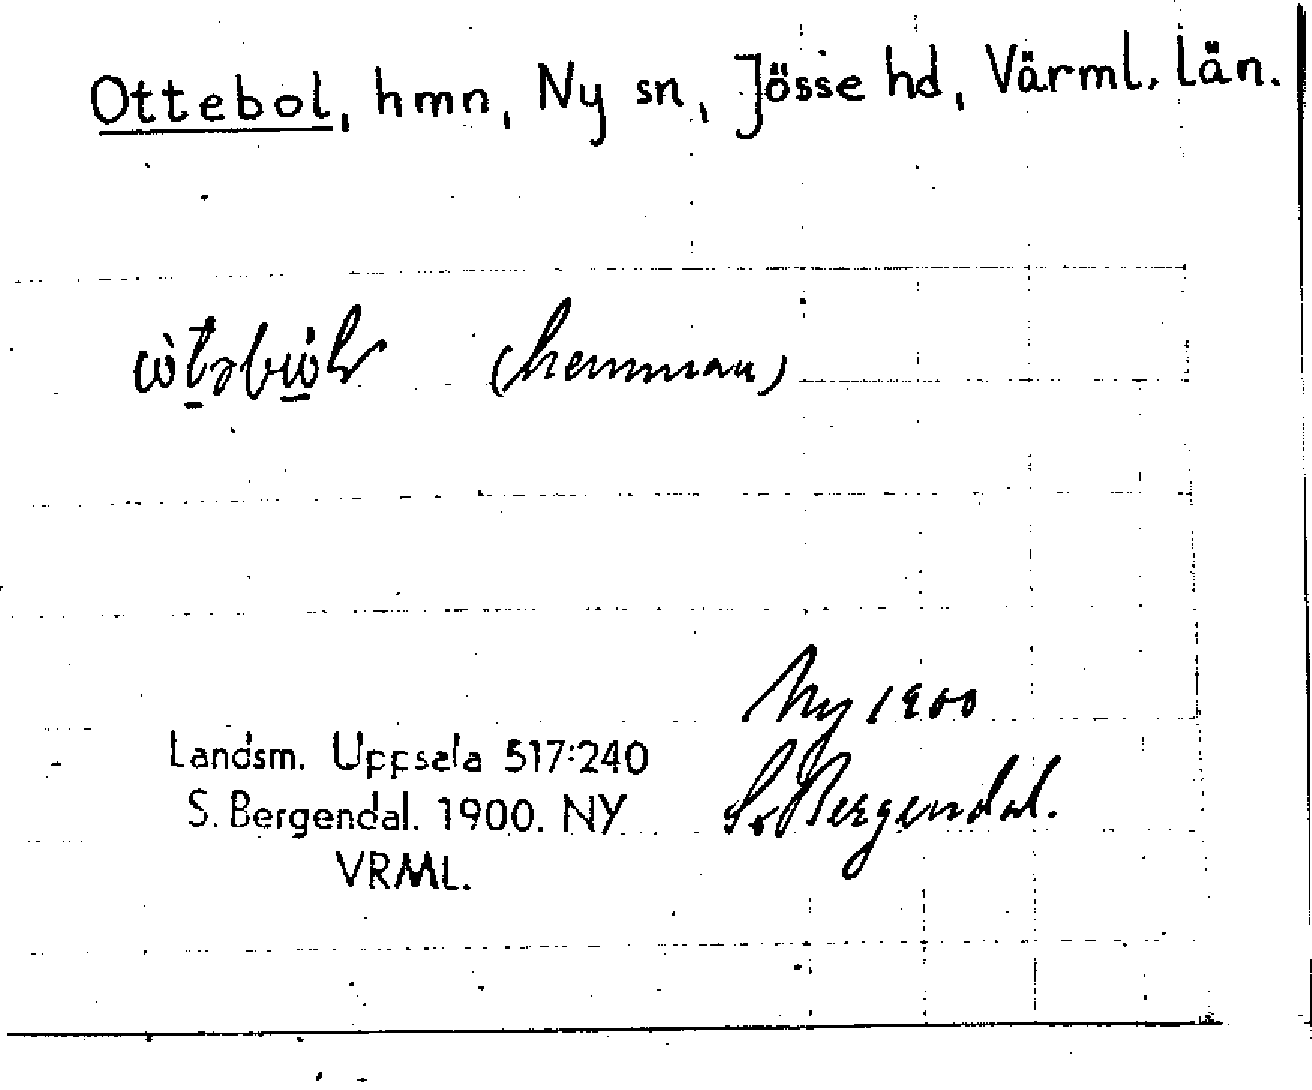 Ottebol, hmn, Ny sn, Jösse hd, Värml. län.
(hemman)
Ny 1900
Landsm. Uppsala 517:240
S. Bergendal. 1900. NY
VRML.
S. Bergendal.